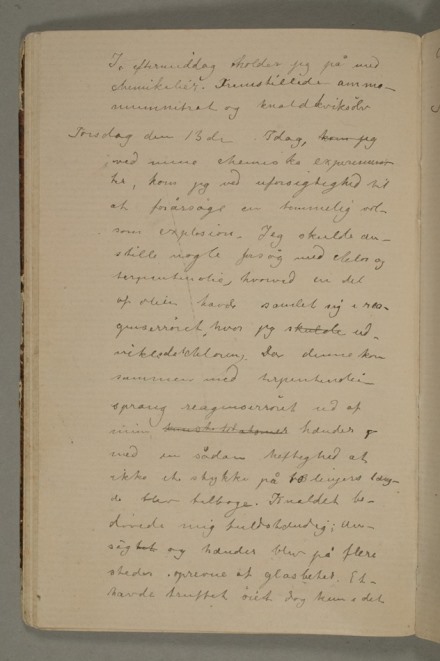 I eftermiddag holder jeg på med
chemikalier. Fremstillede ammo-
niumnitrat og knaldkviksølv
Torsdag den 13de. Idag, kom jeg
ved mine chemiske experimen-
ter, kom jeg ved uforsigtighed til
at forårsage en temmelig vol-
som explosion. Jeg skulde an-
stille nogle forsøg med chlor og
terpentinolie, hvorved en del
af olein havde samlet sig i rea-
genserrøret, hvor jeg skulde ud-
viklede chloren. Da denne kom
sammen med terpentinolein
sprang reagenserrøret ud af
mine hænder
med en sådan heftighed at
ikke et stykke på 1/8 lingers læng-
de blev tilbage. Knaldet be-
døvede mig fuldstændig; An-
sigt og hænder blev på flere
steder oprevne af glasset. Et
havde truffet øiet dog kun i det